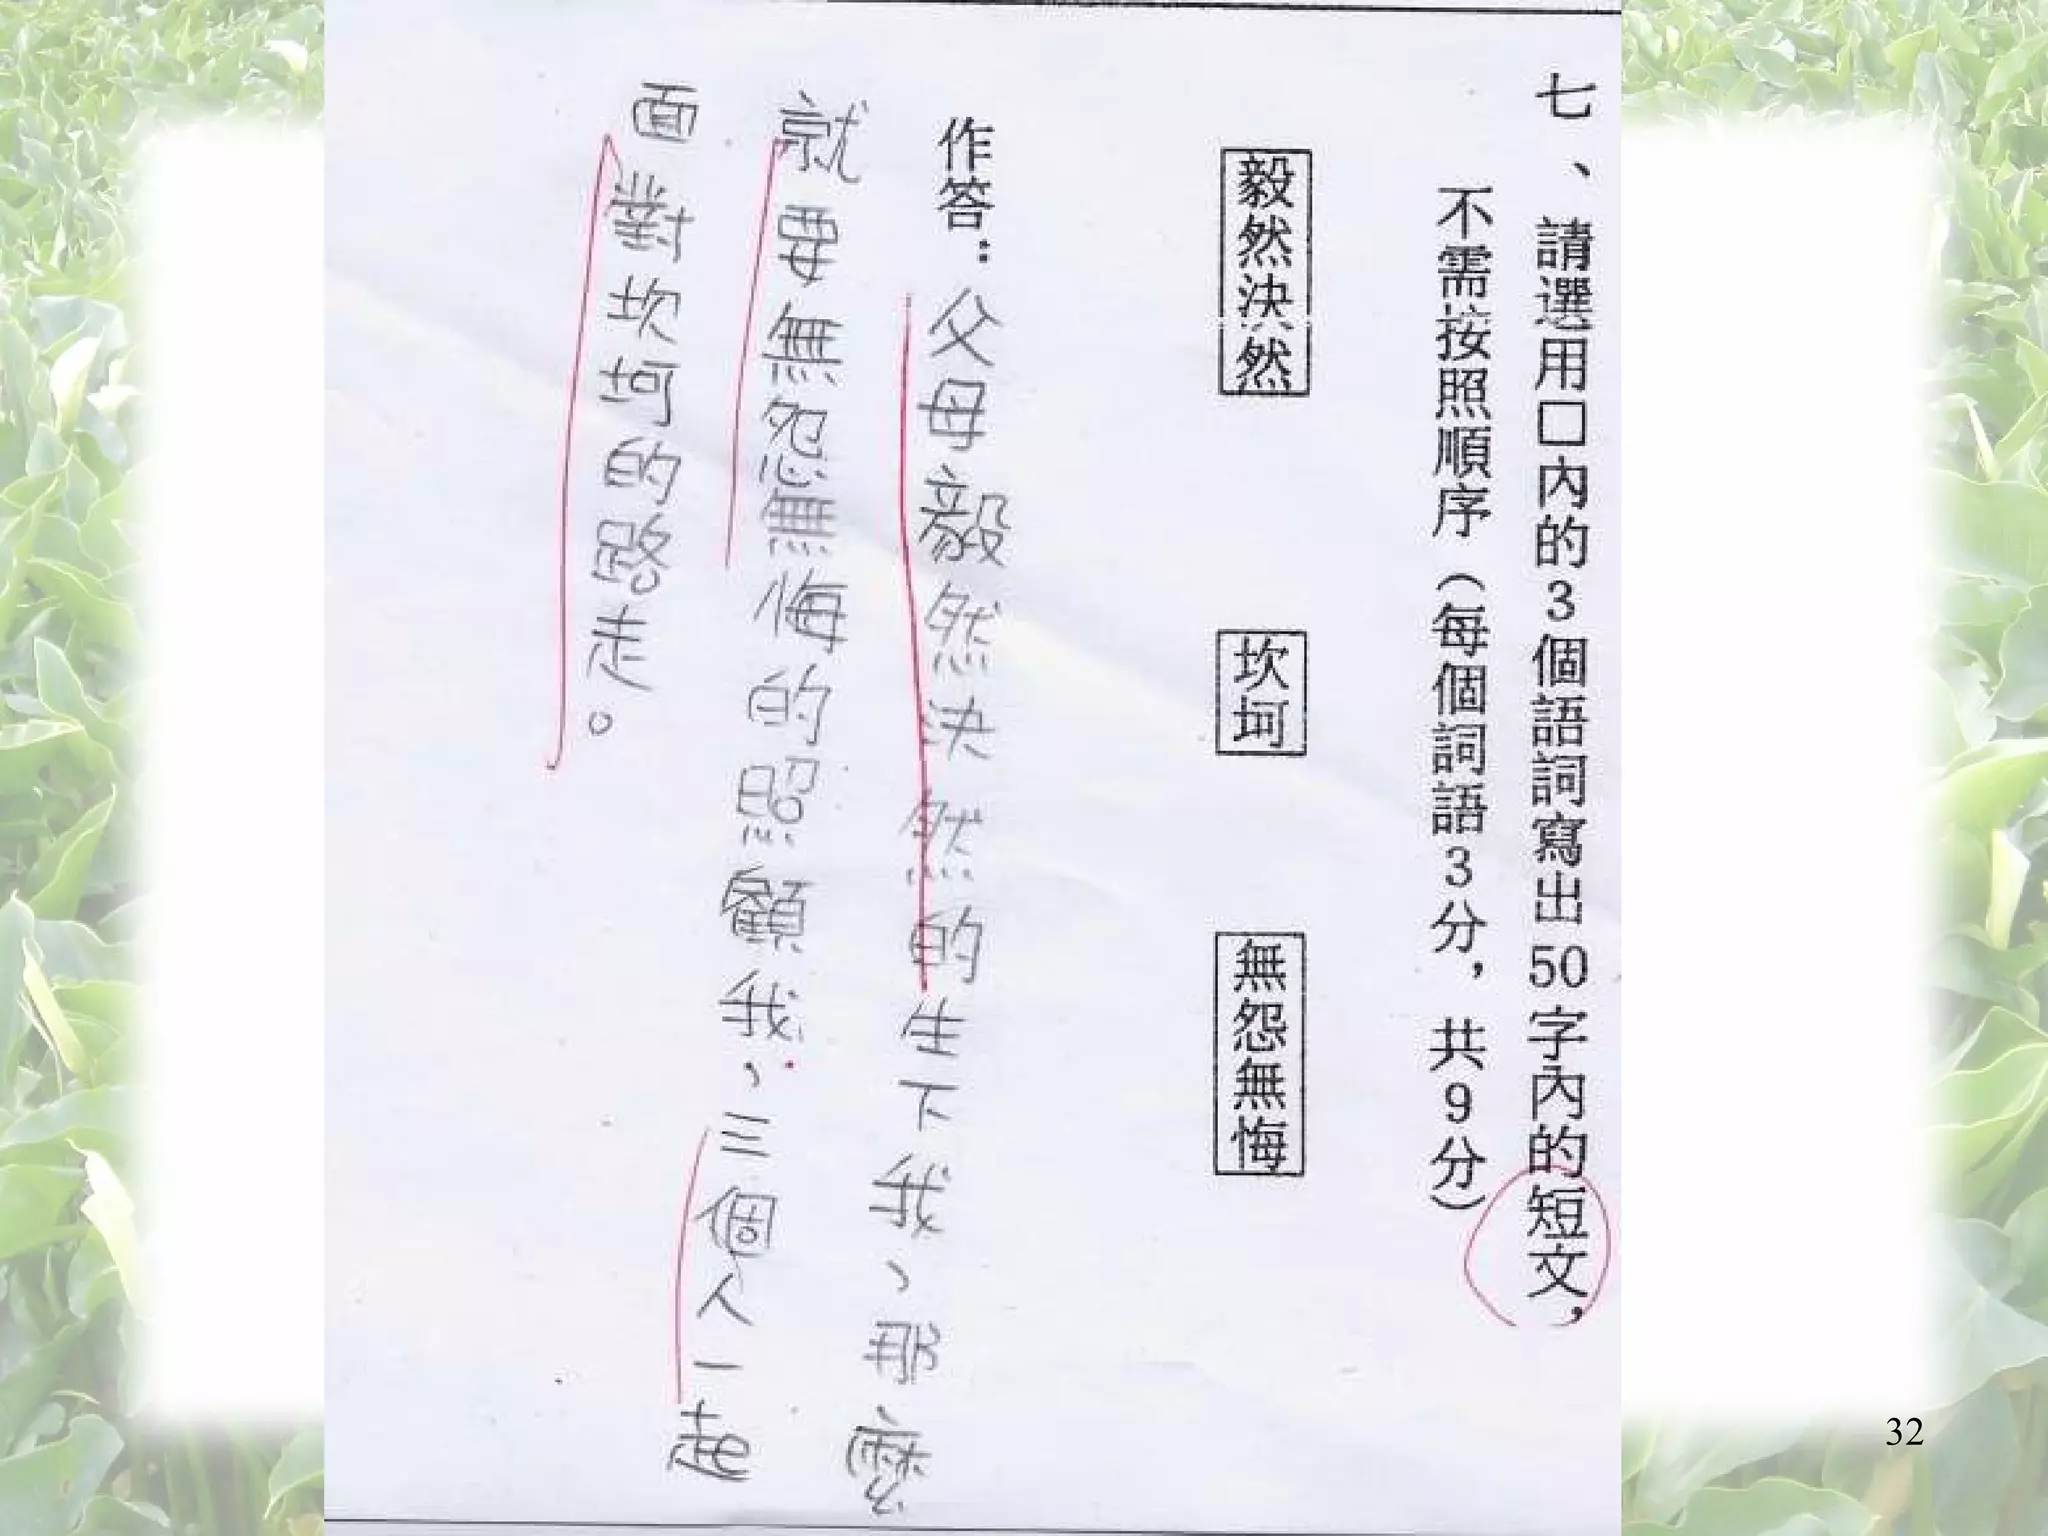 七、請選用□內的3個語詞寫出50字內的短文，
不需按照順序（每個詞語3分，共9分）
毅然決然
坎坷
無怨無悔
作答：父母毅然決然的生下我、那麼
就要無怨無悔的照顧我、三個人一起
面對坎坷的路走。
32